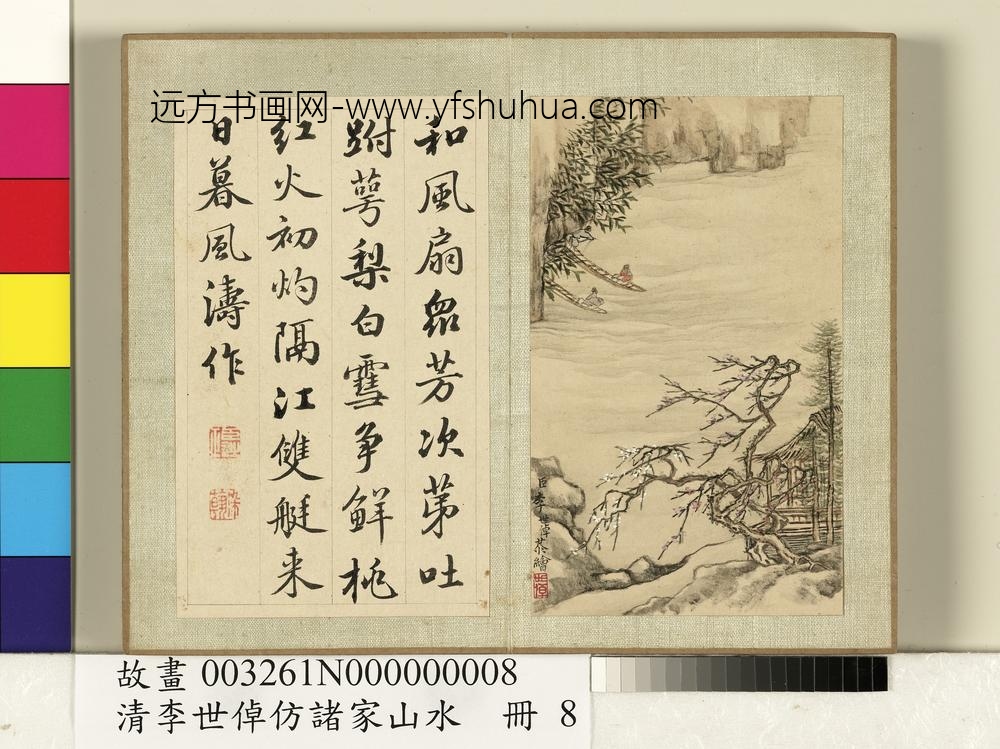 远方书画网-www.yfshuhua.com
和風扇眾芳次第吐
跗萼梨白雪爭鮮桃
紅火初灼隔江雙艇来
日暮風濤作
臣李世倬恭繪
故畫 003261N000000008
清李世倬仿諸家山水 冊 8